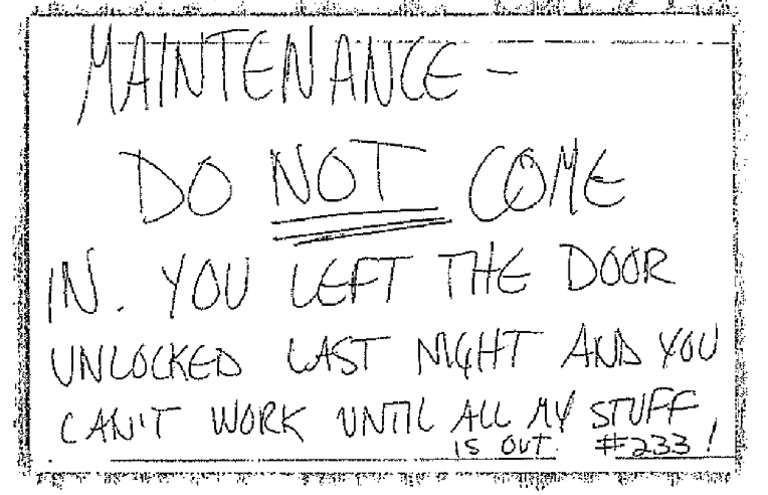 MAINTENANCE -
DO NOT COME
IN. YOU LEFT THE DOOR
UNLOCKED LAST NIGHT AND YOU
CAN'T WORK UNTIL ALL MY STUFF
IS OUT. #233!